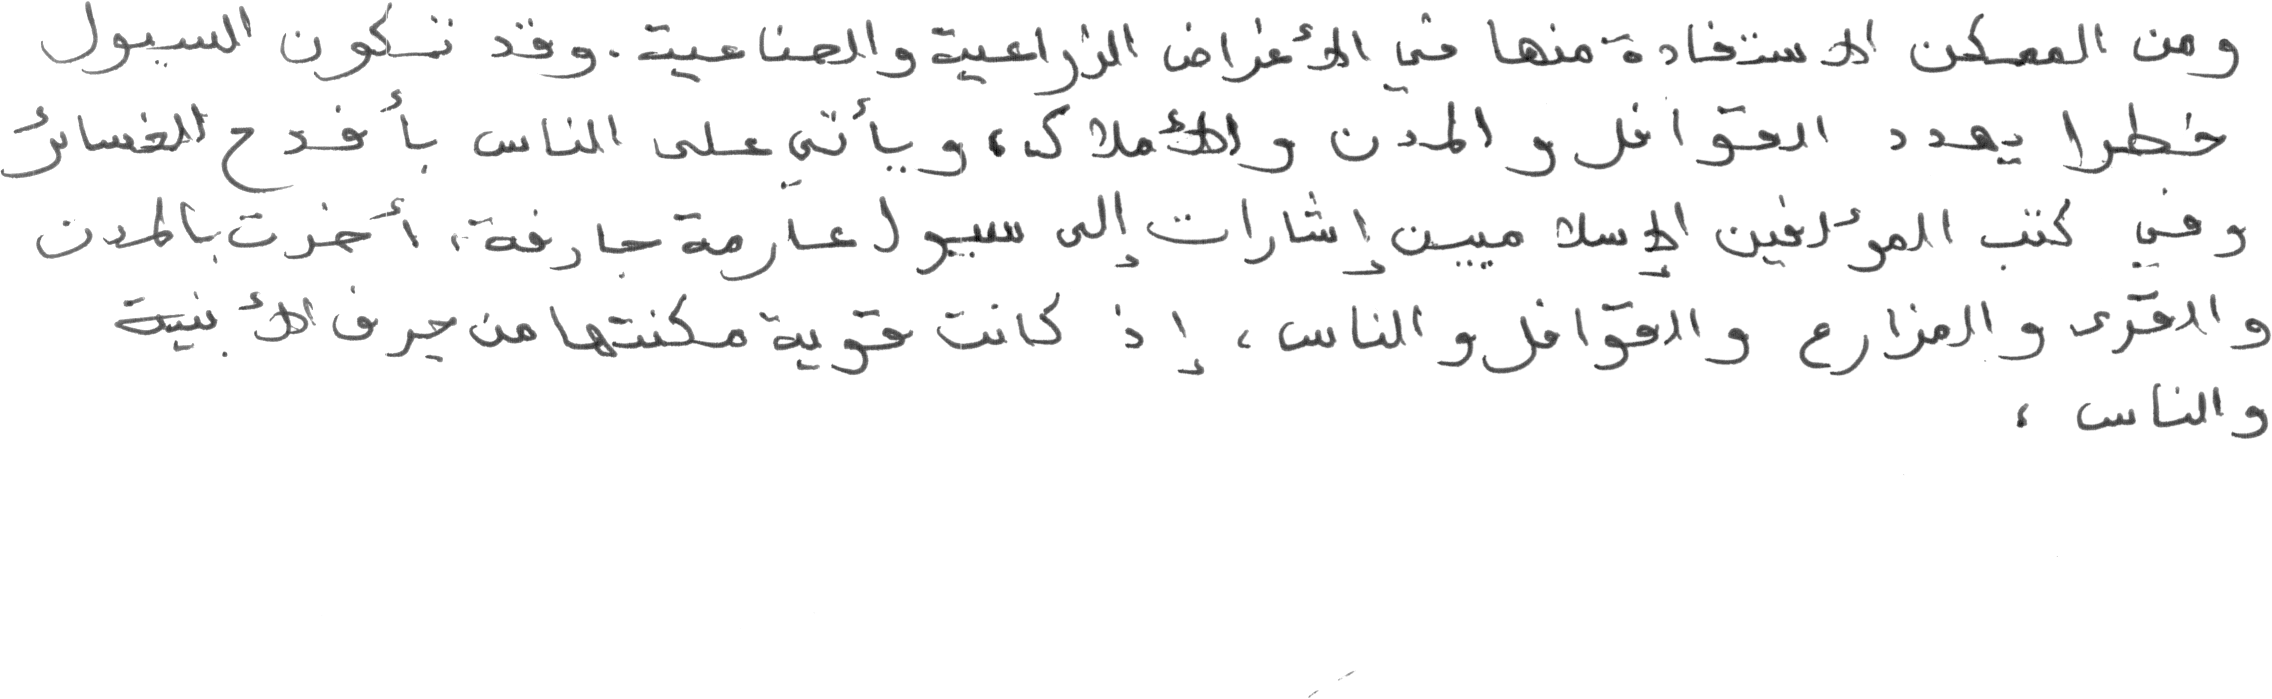 ومن الممكن الاستفادة منها في الأغراض الزراعية والصناعية. وقد تكون السيول
خطرا يهدد القوافل والمدن والأملاك، ويأتي على الناس بأفدح الخسائر
وفي كتب المؤلفين الإسلاميين إشارات إلى سيول عارمة جارفة، أخذت بالمدن
والقرى والمزارع والقوافل والناس، إذ كانت قوية مكنتها من جرف الأبنية
والناس،